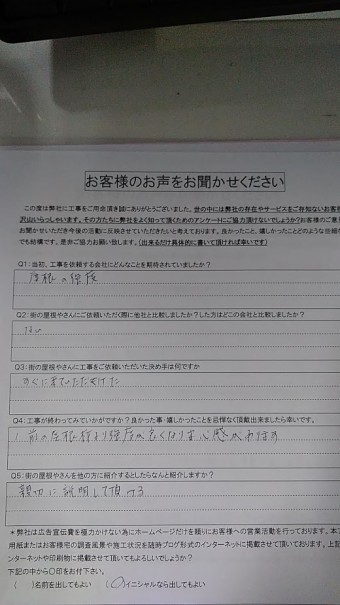 お客様のお声をお聞かせください
この度は弊社に工事をご用命頂き誠にありがとうございました。世の中には弊社の存在やサービスをご存知ないお客
沢山いらっしゃいます。その方たちに弊社をよく知って頂くためのアンケートにご協力頂けないでしょうか？お客様のご意
お聞かせいただき今後の活動に反映させていただきたいと考えております。良かったこと、嬉しかったことどのような些細な
でも結構です。是非ご協力お願い致します。（出来るだけ具体的に書いて頂ければ幸いです）
Q1：当初、工事を依頼する会社にどんなことを期待されていましたか？
屋根の強度
Q2：街の屋根やさんにご依頼いただく際に他社と比較しましたか？した方はどこの会社と比較しましたか？
Q3：街の屋根やさんに工事をご依頼いただいた決め手は何ですか
すぐに来ていただけた
Q4：工事が終わってみていかがですか？良かった事・嬉しかったことを忌憚なく頂戴出来ましたら幸いです。
前の屋根材より強度が良くなり安心感があります
Q5：街の屋根やさんを他の方に紹介するとしたらなんと紹介しますか？
親切に説明して頂ける
＊弊社は広告宣伝費を極力かけない為にホームページだけを頼りにお客様への営業活動を行っております。本ア
用紙またはお客様宅の調査風景や施工状況を随時ブログ形式のインターネットに掲載させて頂いております。上記
ンターネットや印刷物に掲載させて頂いてもよろしいでしょうか？
下記の中から〇印をお付下さい。
（　）名前を出してもよい　（〇）イニシャルなら出してもよい